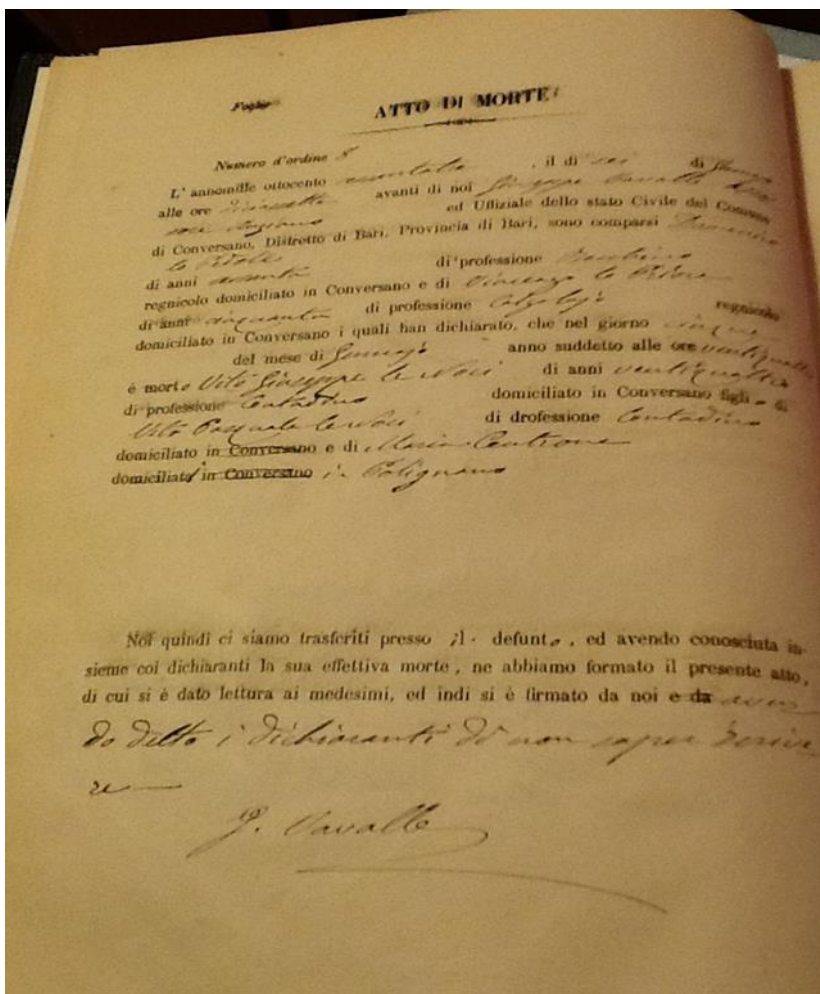 Foglio
ATTO DI MORTE
Numero d'ordine 8
L' annomille ottocento , il dì sei di
alle ore avanti di noi Giuseppe
ed Uffiziale dello stato Civile del Comune
di Conversano, Distretto di Bari, Provincia di Bari, sono comparsi
di anni di professione
regnicolo domiciliato in Conversano e di Vincenzo lo
di anni cinquanta di professione Calzolajo regnicolo
domiciliato in Conversano i quali han dichiarato, che nel giorno cinque
del mese di Gennajo anno suddetto alle ore ventiquattro
è morto Vito Giuseppe le Noci di anni ventiquattro
di professione Contadino domiciliato in Conversano figlio di
Vito Pasquale le Noci di drofessione Contadino
domiciliato in Conversano e di Maria Centrone
domiciliata in Conversano in Polignano
Noi quindi ci siamo trasferiti presso il defunto, ed avendo conosciuta in-
sieme coi dichiaranti la sua effettiva morte, ne abbiamo formato il presente atto,
di cui si è dato lettura ai medesimi, ed indi si è firmato da noi e da aven
do detto i dichiaranti di non saper scrive
re
G. Vavalle